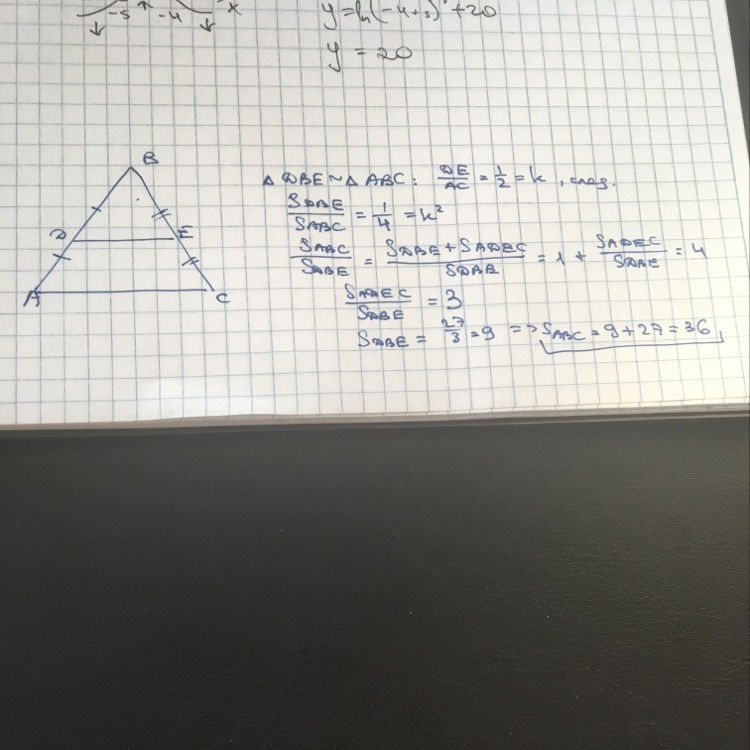 -5 -4 x
y = ln(-4+5)⁵ + 20
y = 20
B
D
E
A
C
△ DBE ~ △ ABC: DE/AC = 1/2 = k, след.
S_DBE/S_ABC = 1/4 = k²
S_ABC/S_DBE = (S_DBE + S_ADEC)/S_DBE = 1 + S_ADEC/S_DBE = 4
S_ADEC/S_DBE = 3
S_DBE = 27/3 = 9 => S_ABC = 9 + 27 = 36